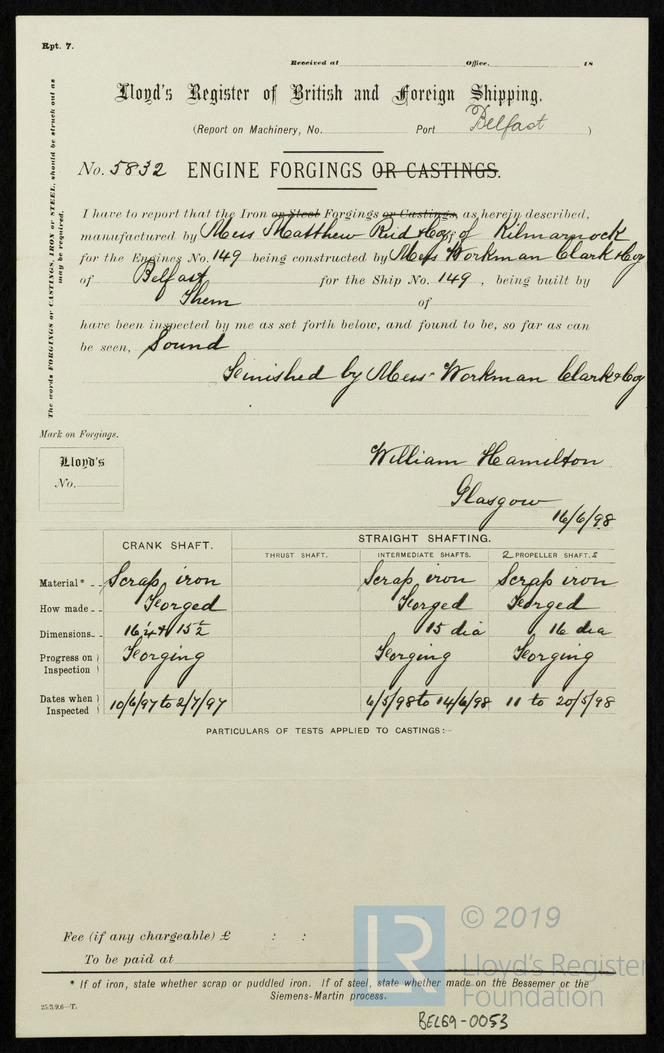 Rpt. 7.
Received at Office. 18
Lloyd's Register of British and Foreign Shipping.
(Report on Machinery, No. Port Belfast )
No. 5832 ENGINE FORGINGS OR CASTINGS.
The words FORGINGS or CASTINGS, IRON or STEEL, should be struck out as
may be required.
I have to report that the Iron or Steel Forgings or Castings, as herein described,
manufactured by Mess Matthew Reid & Coy of Kilmarnock
for the Engines No. 149 being constructed by Mess Workman Clark & Coy
of Belfast for the Ship No. 149 , being built by
Them of
have been inspected by me as set forth below, and found to be, so far as can
be seen, Sound
Finished by Mess Workman Clark & Coy
Mark on Forgings.
Lloyd's
No.
William Hamilton
Glasgow
16/6/98
CRANK SHAFT. STRAIGHT SHAFTING.
THRUST SHAFT. INTERMEDIATE SHAFTS. 2 PROPELLER SHAFT.s
Material* Scrap iron Scrap iron Scrap iron
How made Forged Forged Forged
Dimensions 16 1/4 & 15 1/2 15 dia 16 dia
Progress on Inspection Forging Forging Forging
Dates when Inspected 10/6/97 to 2/7/97 6/5/98 to 14/6/98 11 to 20/5/98
PARTICULARS OF TESTS APPLIED TO CASTINGS:—
Fee (if any chargeable) £ : :
To be paid at
* If of iron, state whether scrap or puddled iron. If of steel, state whether made on the Bessemer or the
Siemens-Martin process.
25/3/96—T.
LR © 2019
Lloyd's Register
Foundation
BEL69-0053